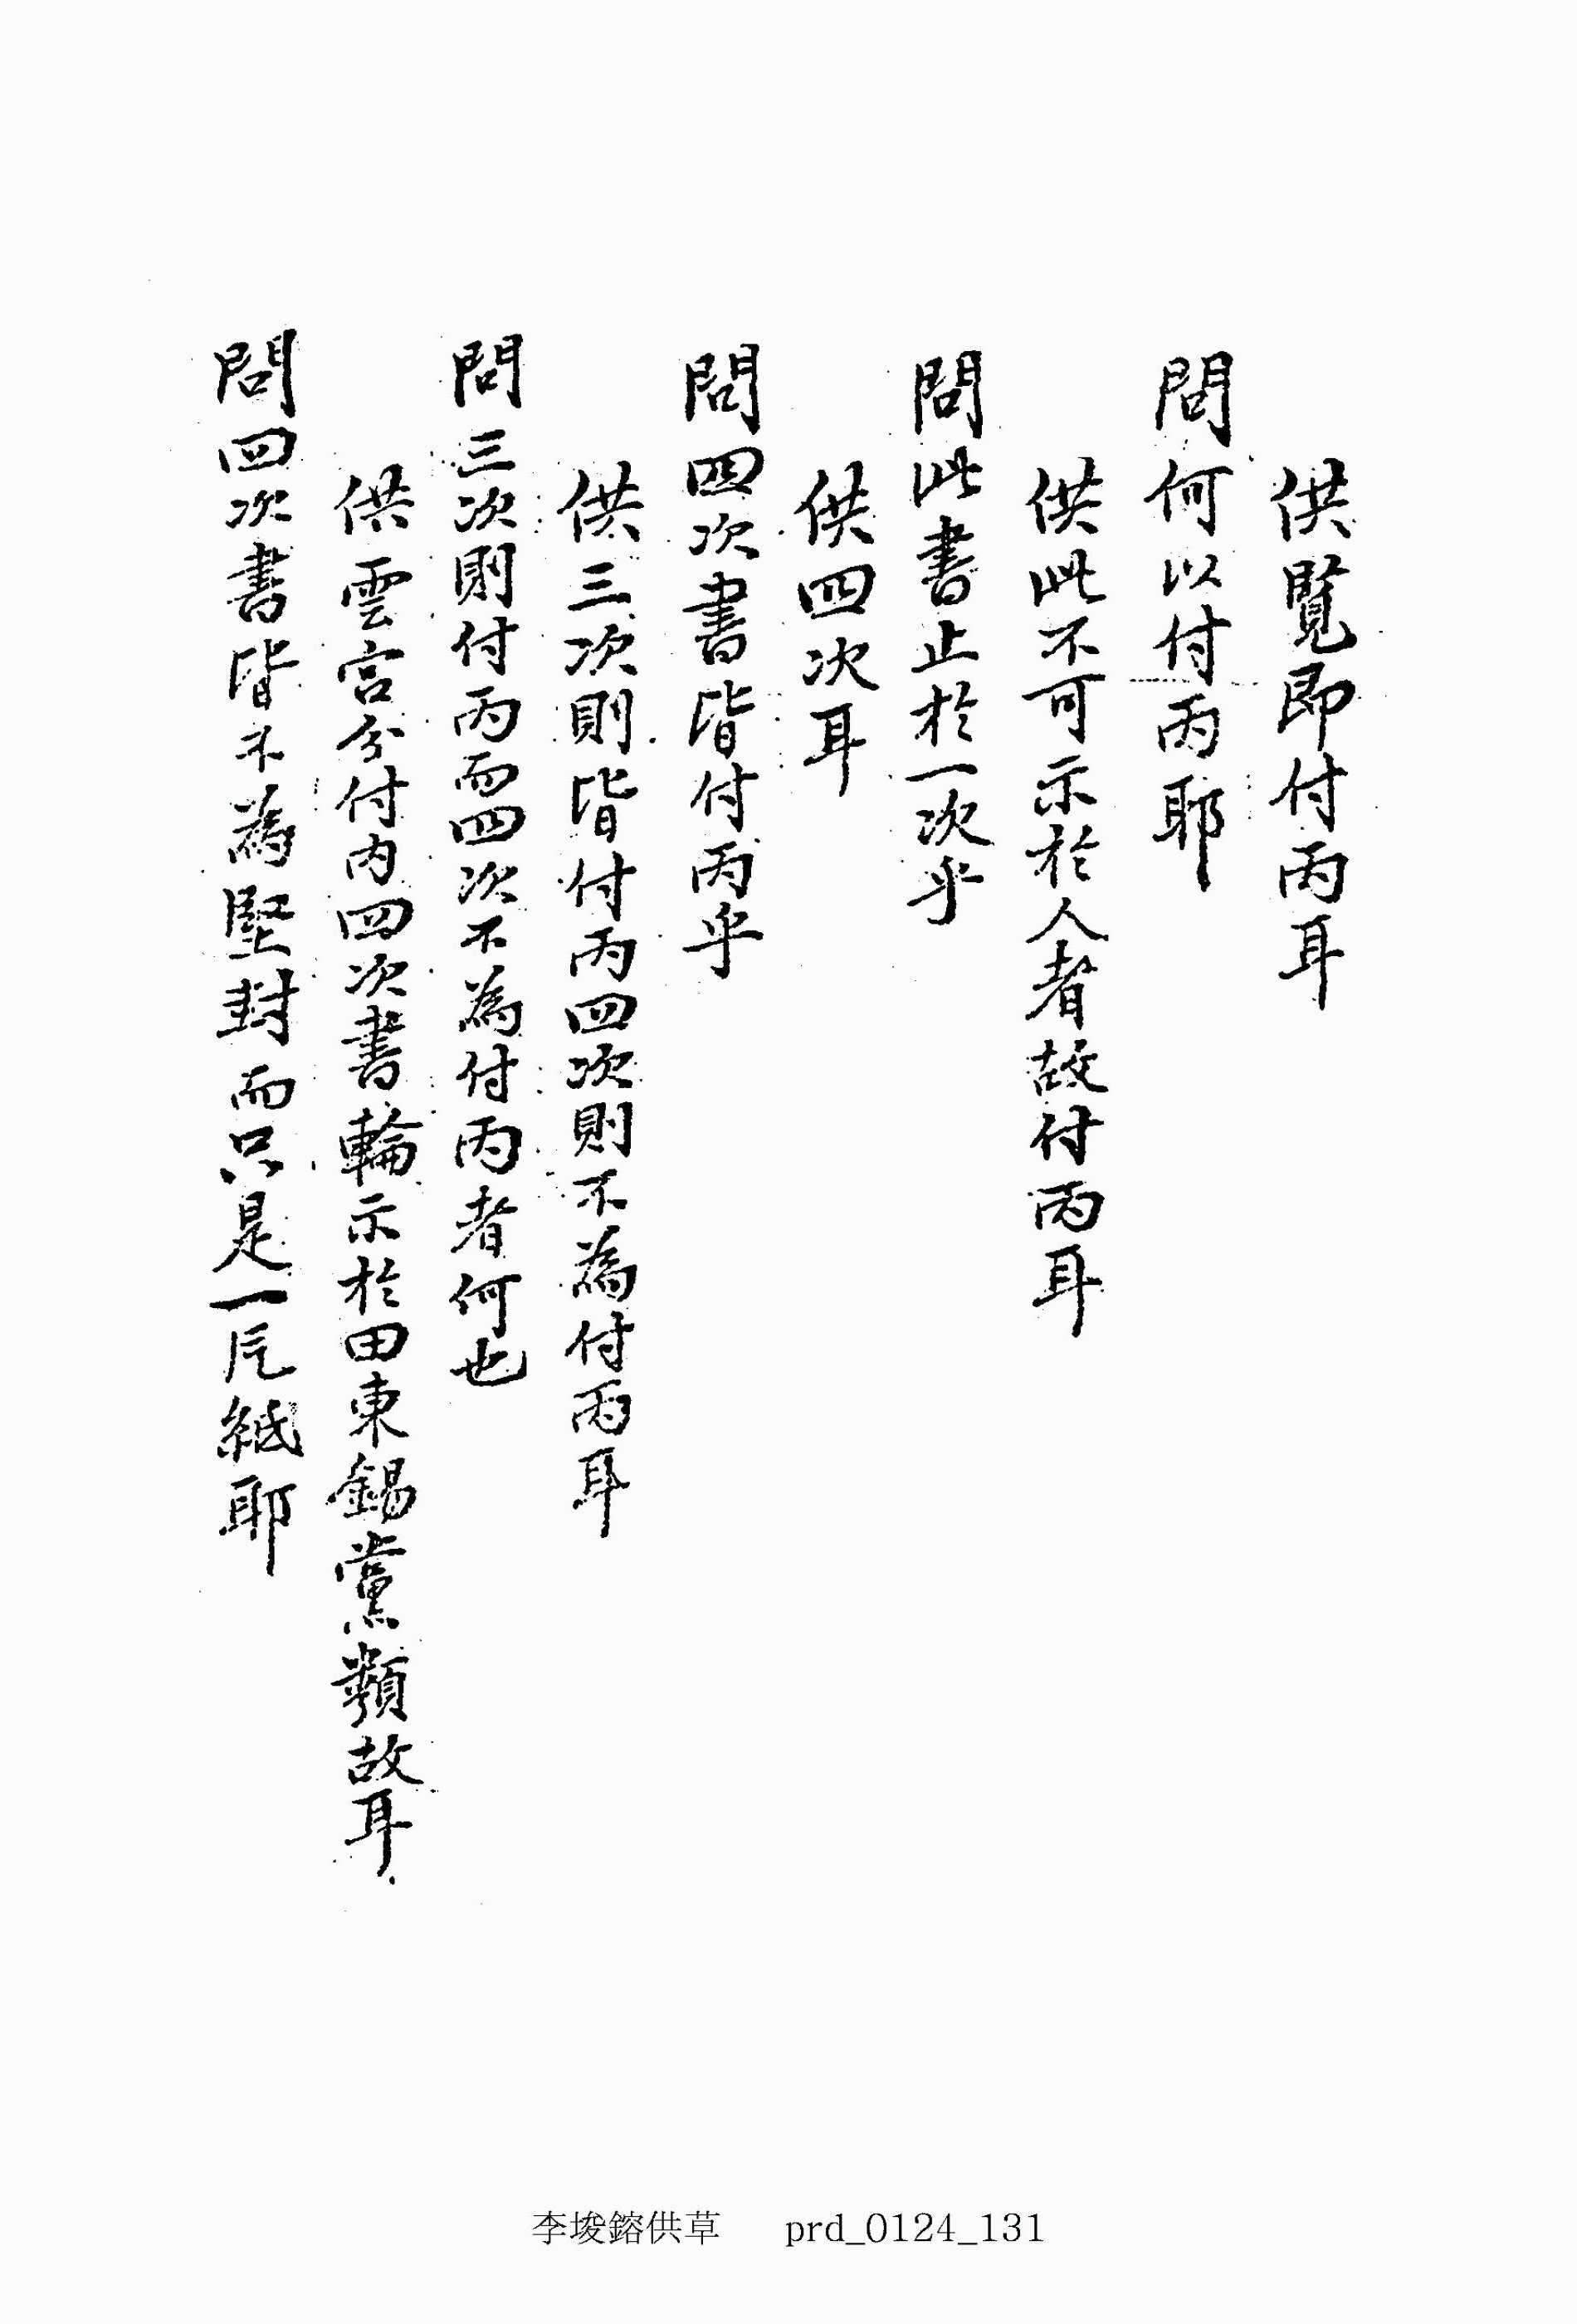 供覽即付丙耳
問何以付丙耶
供此不可示於人者故付丙耳
問此書止於一次乎
供四次耳
問四次書皆付丙乎
供三次則皆付丙四次則不為付丙耳
問三次則付丙而四次不為付丙者何也
供雲宮分付內四次書輪示於田東錫黨類故耳
問四次書皆不為堅封而只是一片紙耶
李埈鎔供草 prd_0124_131